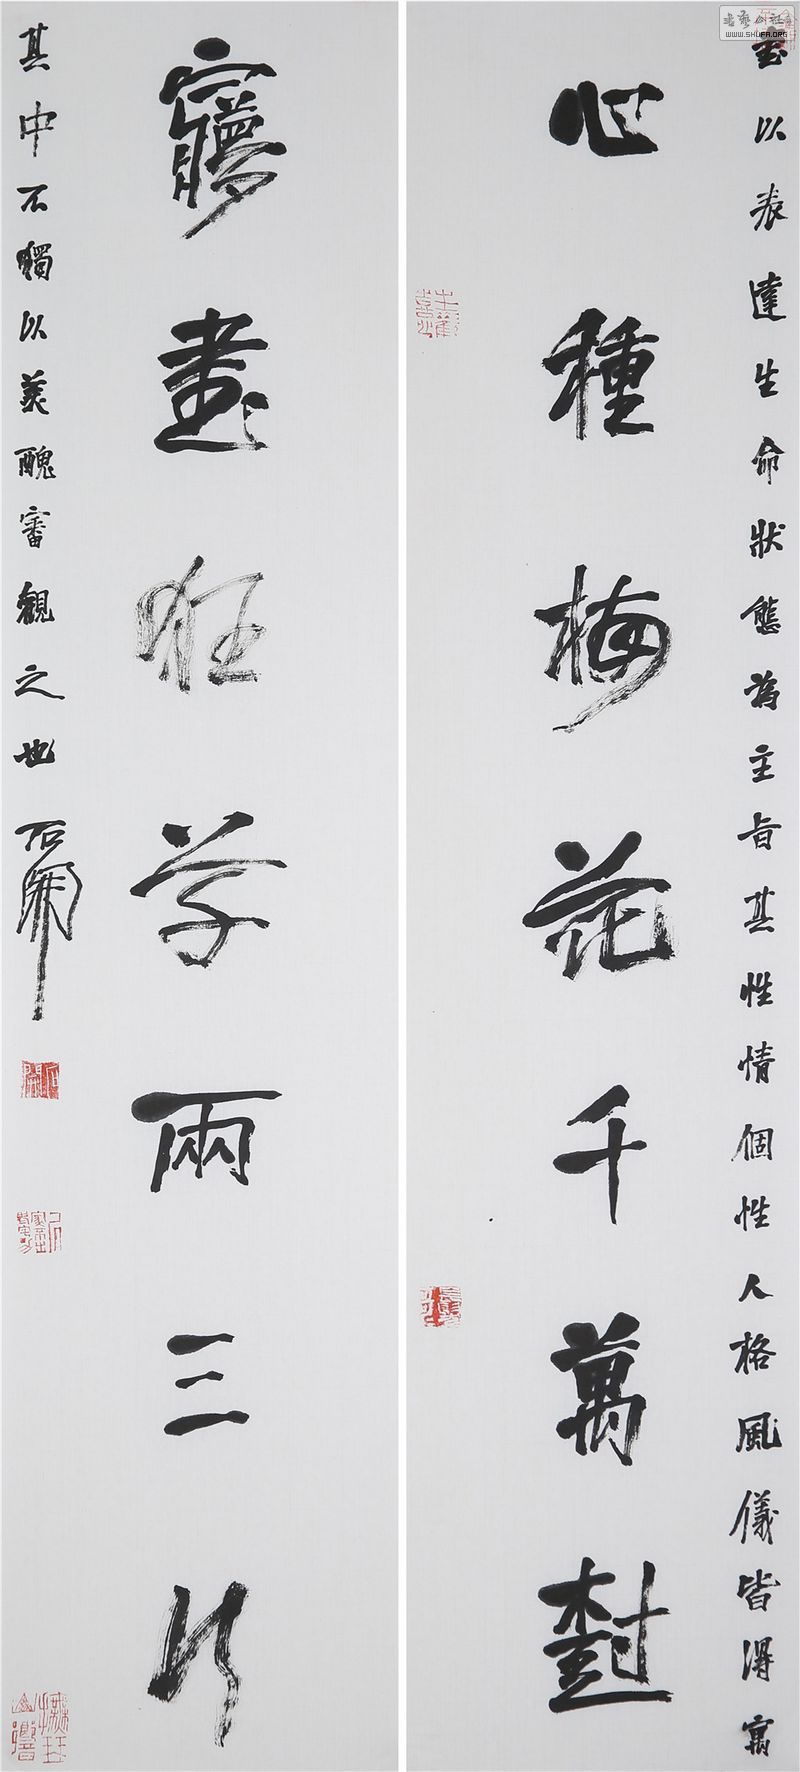 書以表達生命狀態為主旨其性情個性人格風儀皆得寓
心種梅花千萬樹
夢書狂草兩三行
其中不獨以美醜審觀之也 石開
WWW.SHUFA.ORG